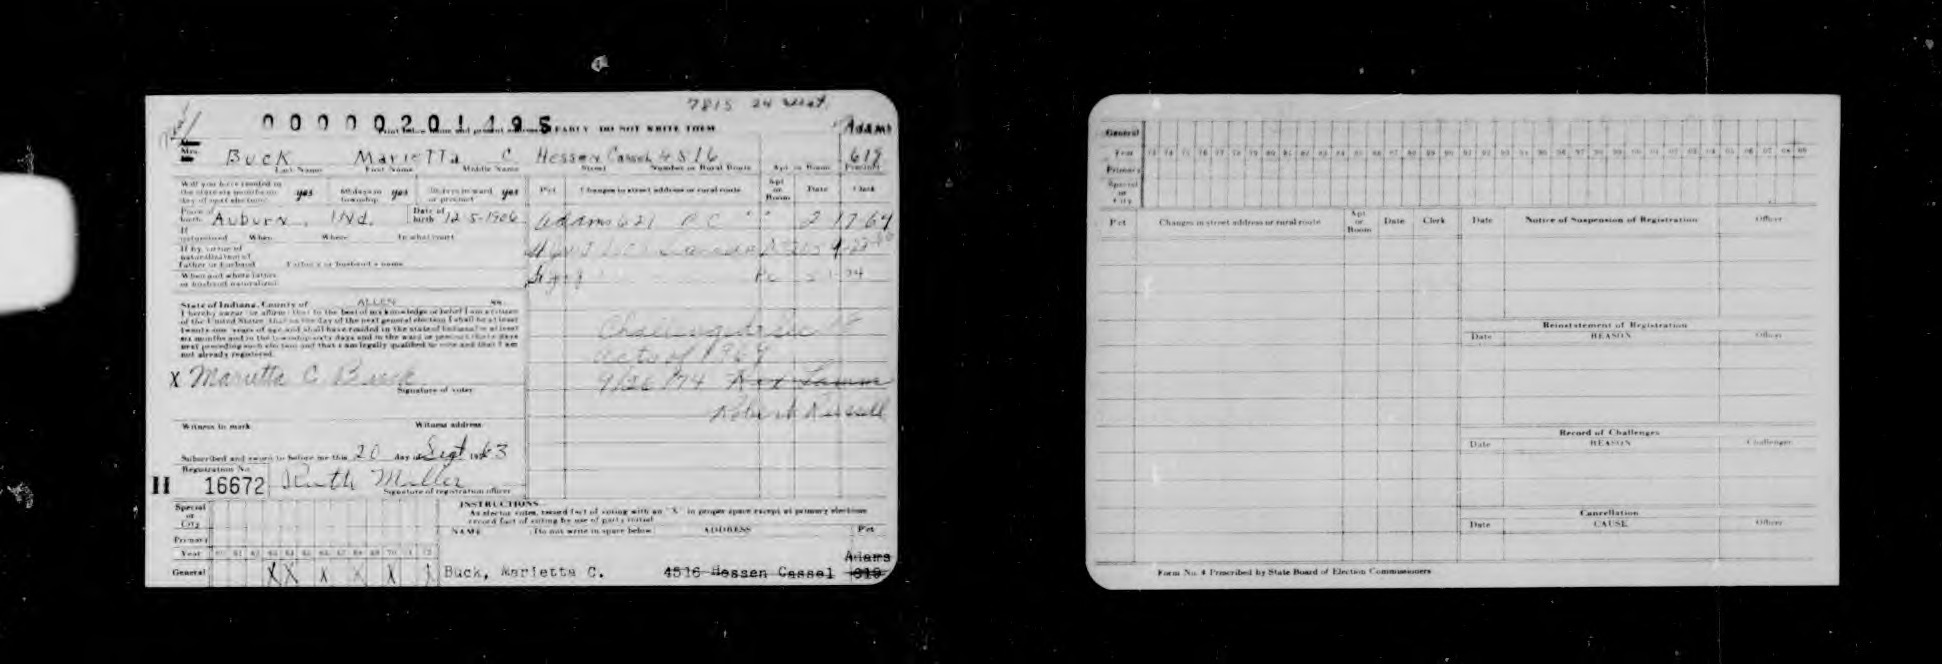 7815
00000201495 EARLY DO NOT WRITE THEM Adams
Mrs. Buck Marietta C. Hessen Cassel 4516 619
Last Name First Name Middle Name Street Number or Rural Route Apt or Room Precinct
Will you have resided in the state six months on day of next election yes 60 days in township yes 30 days in ward or precinct yes Pct Changes in street address or rural route Apt or Room Date Clerk
Place of birth Auburn, Ind. Date of birth 12-5-1906 Adams 621 P C " " 2 17 64
If naturalized When Where In what court
If by virtue of naturalization of Father or husband Father's or husband's name
When and where father or husband naturalized
State of Indiana, County of ALLEN ss
I hereby swear (or affirm) that to the best of my knowledge or belief I am a citizen
of the United States, that on the day of the next general election I shall be at least
twenty-one years of age and shall have resided in the state of Indiana at least
six months and in the township sixty days and in the ward or precinct thirty days
next preceding such election and that I am legally qualified to vote and that I am
not already registered.
acts of 1969
9/26/74
Robert Russell
X Marietta C Buck
Signature of voter
Witness to mark Witness address
Subscribed and sworn to before me this 20 day of Sept 1963
Registration No.
H 16672 Ruth Miller
Signature of registration officer
INSTRUCTIONS
As elector votes, record fact of voting with an "X" in proper space except at primary elections
record fact of voting by use of party initial
Special or City
Primary
NAME (Do not write in space below) ADDRESS Pct
Year 60 61 62 63 64 65 66 67 68 69 70 71 72
General X X X X X X Buck, Marietta C. 4516 Hessen Cassel Adams 619
General
Year
Primary
Special or City
Pct Changes in street address or rural route Apt or Room Date Clerk Date Notice of Suspension of Registration Officer
Reinstatement of Registration
Date REASON Officer
Record of Challenges
Date REASON Challenger
Cancellation
Date CAUSE Officer
Form No. 4 Prescribed by State Board of Election Commissioners